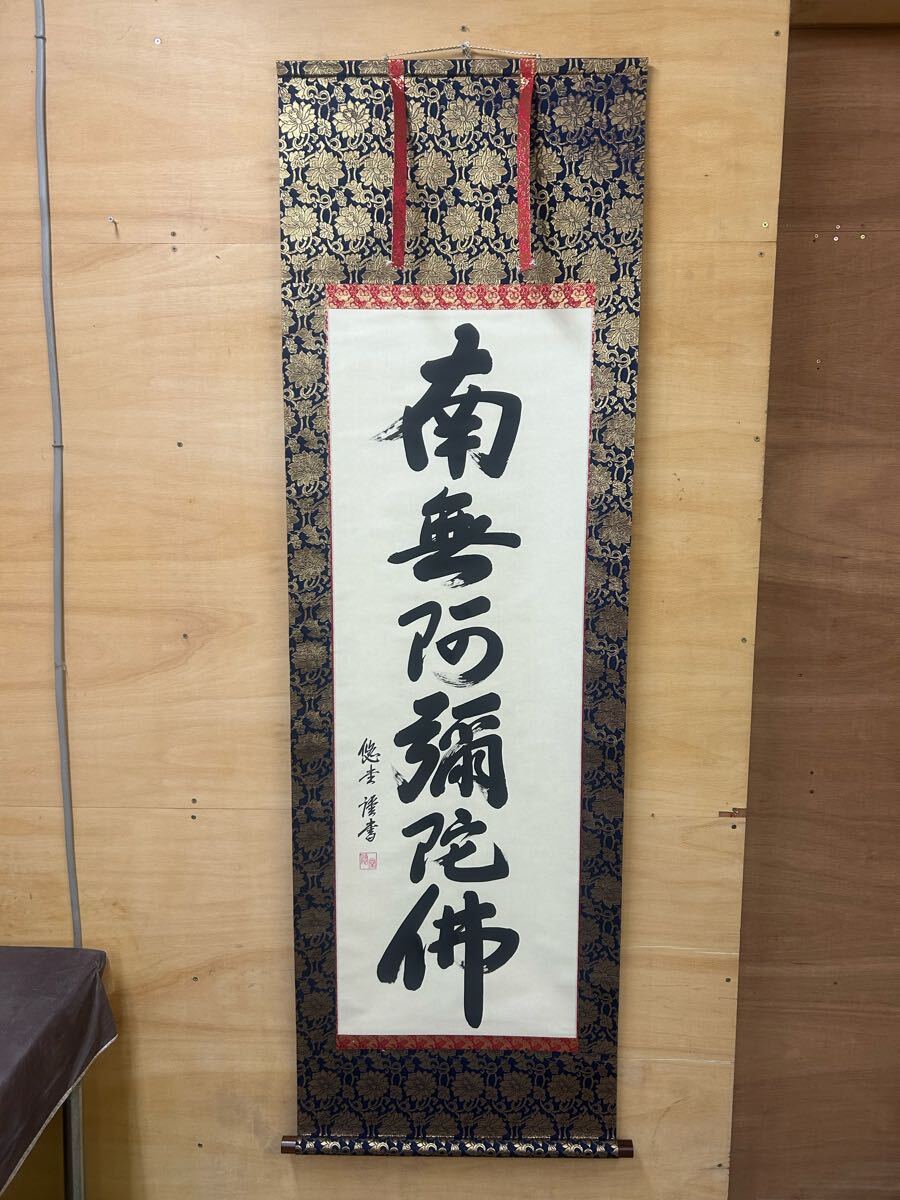 南無阿彌陀佛
悠 謹書